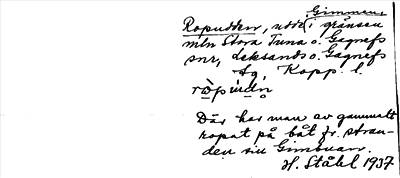 Gimmen,
Ropudden, udde i gränsen
mln Stora Tuna o. Gagnefs
snr, Leksands o. Gagnefs
tg, Kopp. l.
Där har man av gammalt
ropat på båt fr. stran-
den vid
H. Ståhl 1937